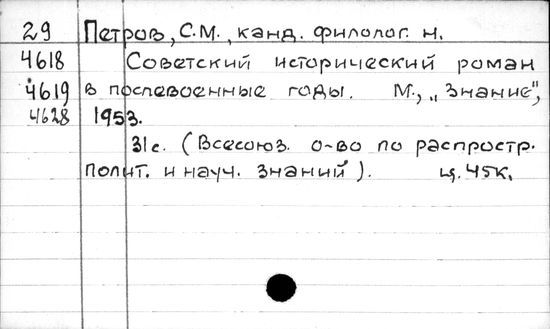 29 Петров, С.М., канд. филолог. н.
4618 Советский исторический роман
4619 в послевоенные годы. М., „Знание",
4628 1953.
31с. (Всесоюз. о-во по распростр.
полит. и науч. знаний). ц. 45к.